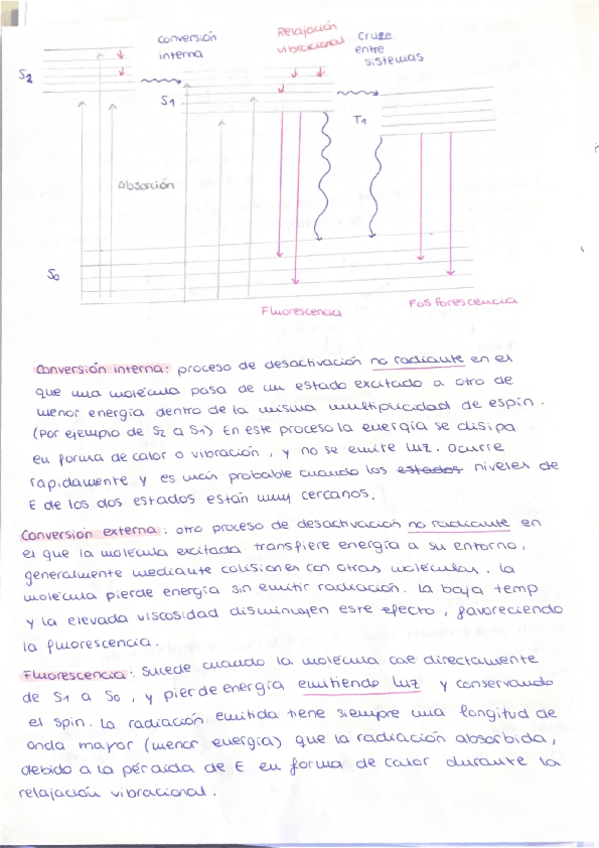 conversión interna
Relajación vibracional
Cruze entre sistemas
S2
S1
T1
Absorción
S0
Fluorescencia
Fosforescencia
Conversión interna: proceso de desactivación no radiante en el
que una molécula pasa de un estado excitado a otro de
menor energía dentro de la misma multiplicidad de espín.
(Por ejemplo de S2 a S1) En este proceso la energía se disipa
en forma de calor o vibración, y no se emite luz. Ocurre
rapidamente y es más probable cuando los estados niveles de
E de los dos estados están muy cercanos.
Conversión externa: otro proceso de desactivación no radiante en
el que la molécula excitada transfiere energía a su entorno,
generalmente mediante colisiones con otras moléculas. La
molécula pierde energía sin emitir radiación. La baja temp
y la elevada viscosidad disminuyen este efecto, favoreciendo
la fluorescencia.
Fluorescencia: Sucede cuando la molécula cae directamente
de S1 a S0, y pierde energía emitiendo luz y conservando
el spin. La radiación emitida tiene siempre una longitud de
onda mayor (menor energía) que la radiación absorbida,
debido a la pérdida de E en forma de calor durante la
relajación vibracional.